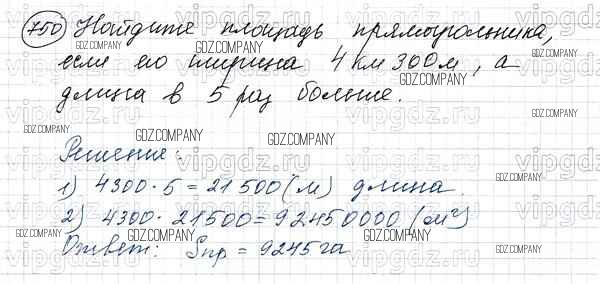 750 Найдите площадь прямоугольника,
если его ширина 4 км 300 м, а
длина в 5 раз больше.
Решение:
1) 4300 · 5 = 21500 (м) длина.
2) 4300 · 21500 = 92450000 (м²)
Ответ: Sпр = 9245 га